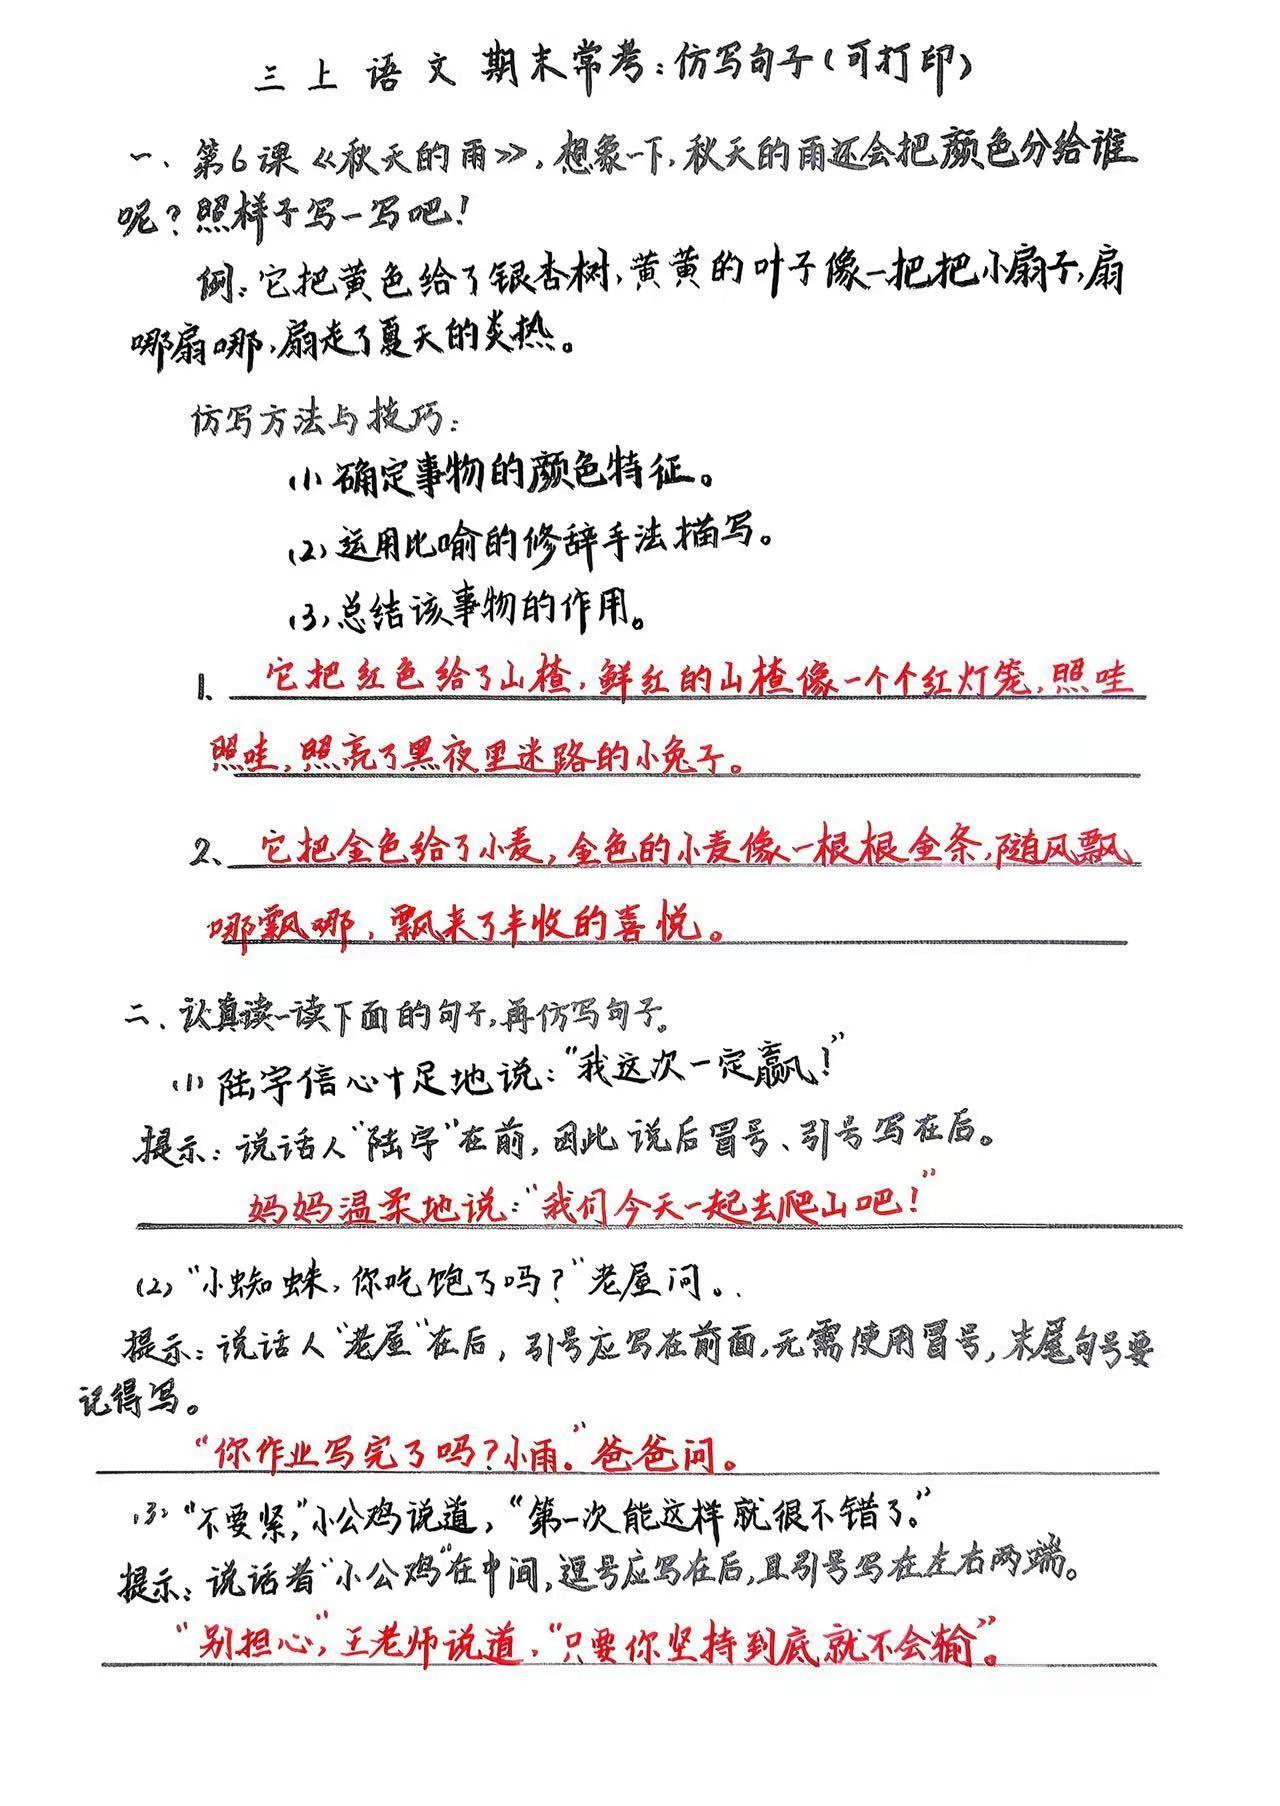 三上语文 期末常考:仿写句子(可打印)
一、第6课《秋天的雨》,想象一下,秋天的雨还会把颜色分给谁
呢?照样子写一写吧!
例:它把黄色给了银杏树,黄黄的叶子像一把把小扇子,扇
哪扇哪,扇走了夏天的炎热。
仿写方法与技巧:
(1)确定事物的颜色特征。
(2)运用比喻的修辞手法描写。
(3)总结该事物的作用。
1、它把红色给了山楂,鲜红的山楂像一个个红灯笼,照哇
照哇,照亮了黑夜里迷路的小兔子。
2、它把金色给了小麦,金色的小麦像一根根金条,随风飘
哪飘哪,飘来了丰收的喜悦。
二、认真读一读下面的句子,再仿写句子。
(1)陆宇信心十足地说:“我这次一定赢!”
提示:说话人“陆宇”在前,因此说后冒号、引号写在后。
妈妈温柔地说:“我们今天一起去爬山吧!”
(2)“小蜘蛛,你吃饱了吗?”老屋问。
提示:说话人“老屋”在后,引号应写在前面,无需使用冒号,末尾句号要
记得写。
“你作业写完了吗?小雨。”爸爸问。
(3)“不要紧,”小公鸡说道,“第一次能这样就很不错了。”
提示:说话者“小公鸡”在中间,逗号应写在后,且引号写在左右两端。
“别担心,”王老师说道,“只要你坚持到底就不会输”。